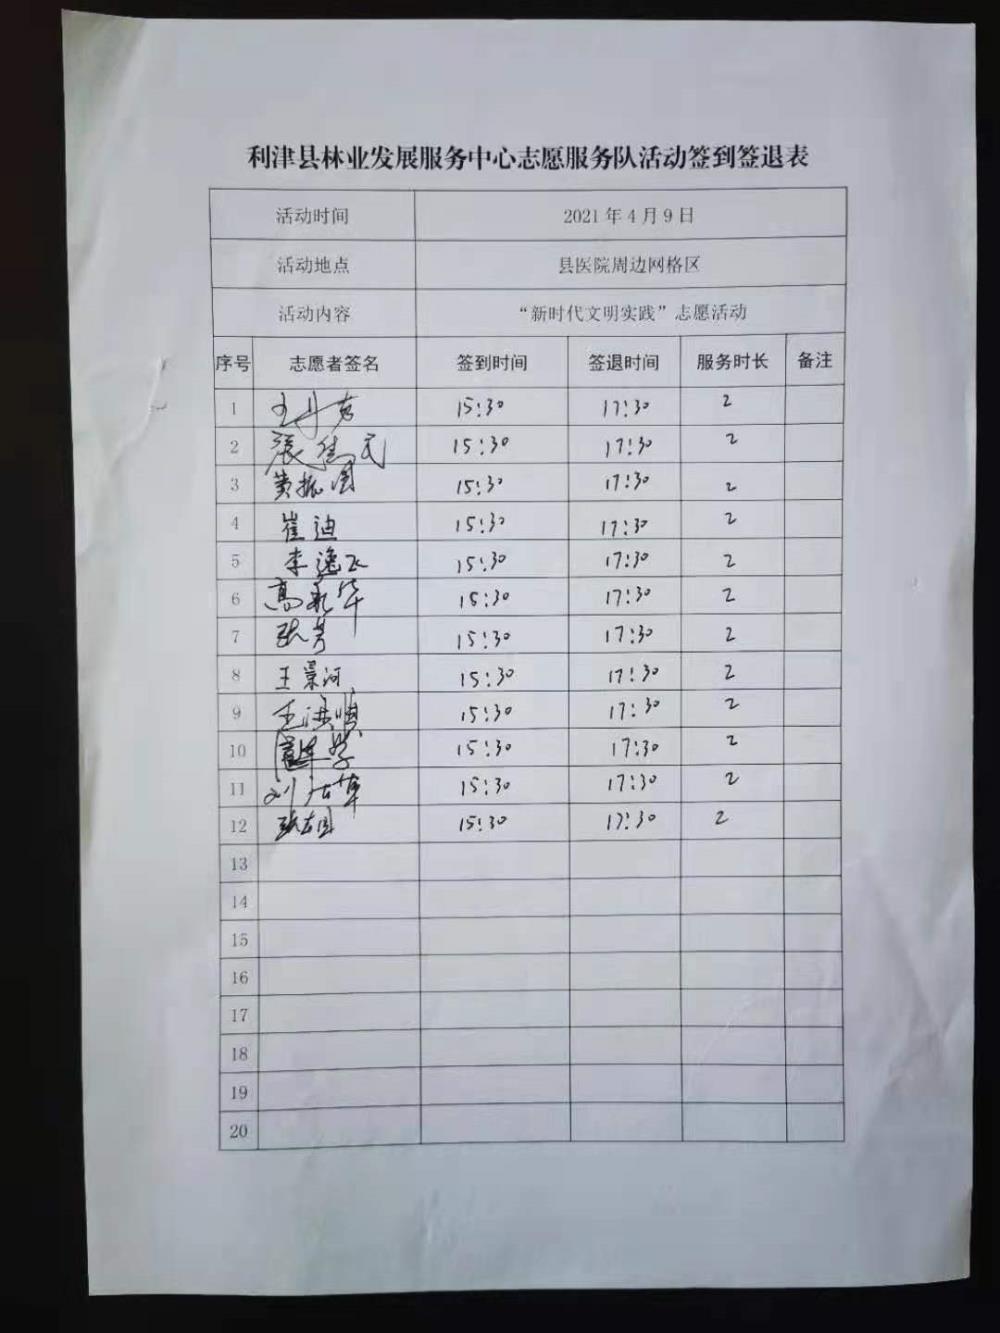 利津县林业发展服务中心志愿服务队活动签到签退表
活动时间 2021年4月9日
活动地点 县医院周边网格区
活动内容 “新时代文明实践”志愿活动
序号 志愿者签名 签到时间 签退时间 服务时长 备注
1 15:30 17:30 2
2 15:30 17:30 2
3 黄振国 15:30 17:30 2
4 崔迪 15:30 17:30 2
5 李逸飞 15:30 17:30 2
6 高永华 15:30 17:30 2
7 张芳 15:30 17:30 2
8 王景河 15:30 17:30 2
9 王洪顺 15:30 17:30 2
10 15:30 17:30 2
11 15:30 17:30 2
12 15:30 17:30 2
13
14
15
16
17
18
19
20